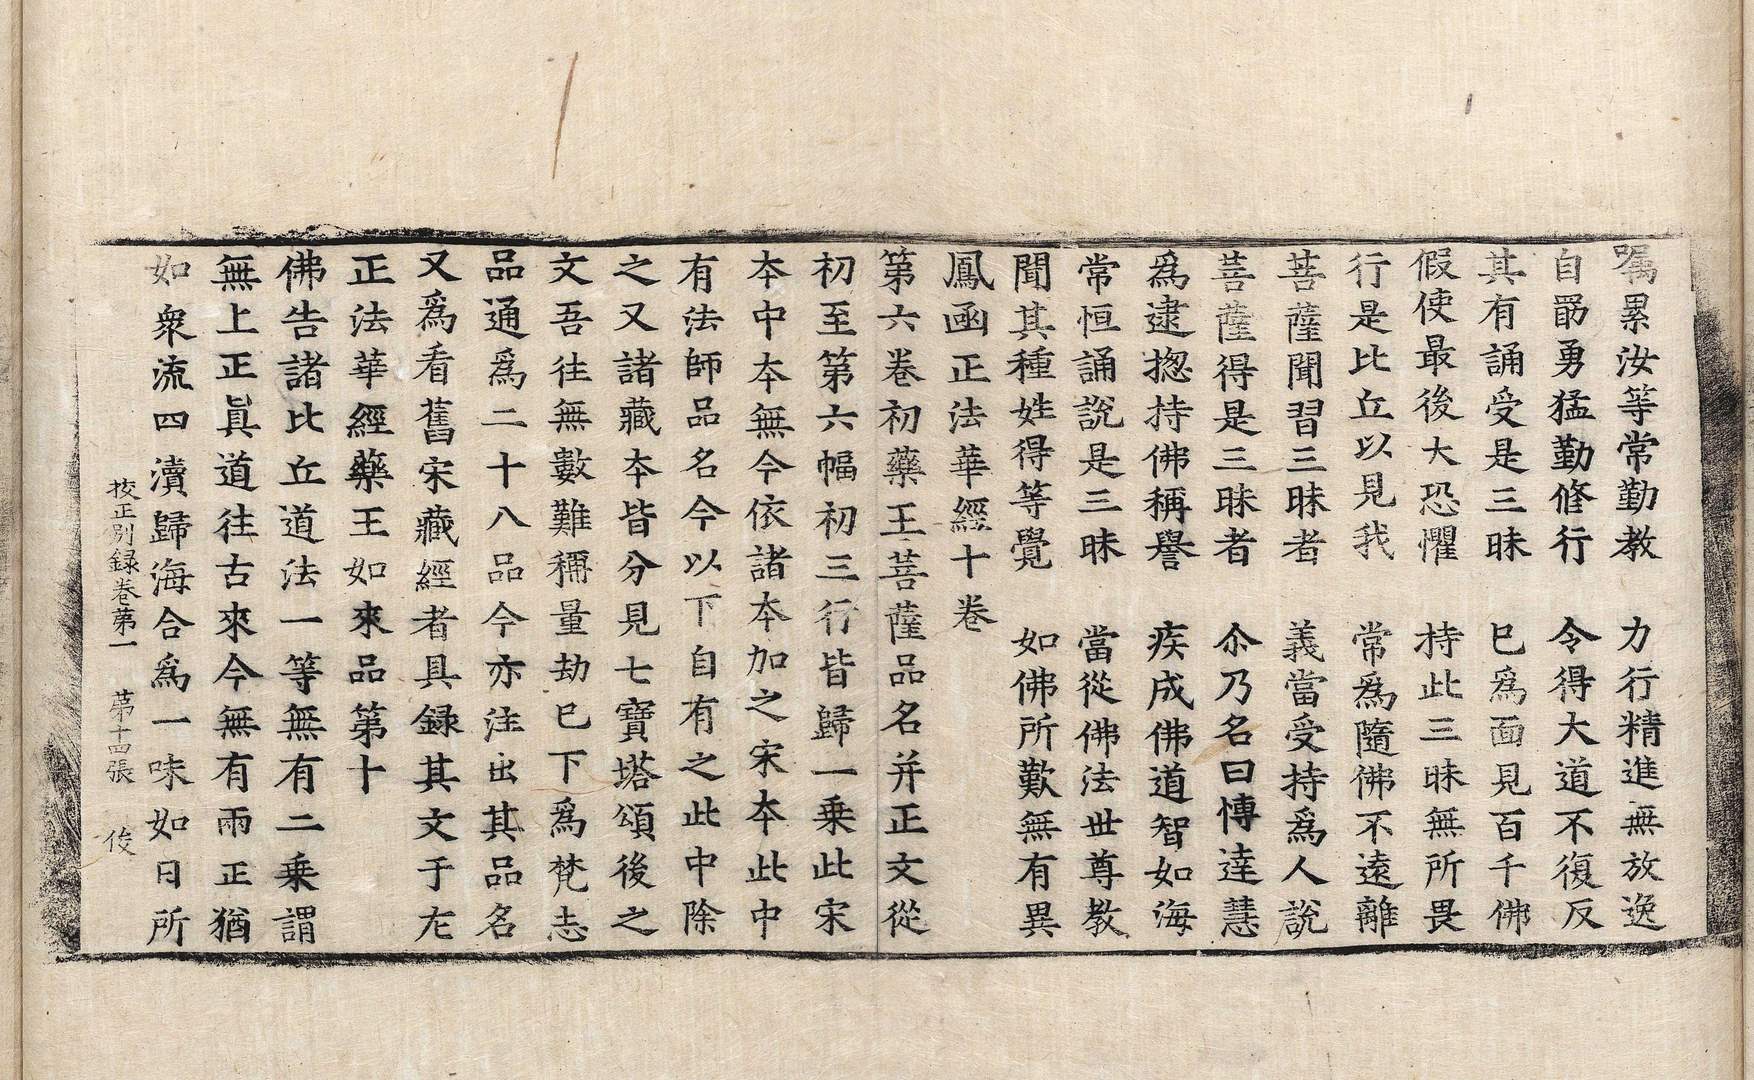 嘱累汝等常勤教　力行精進無放逸
自勗勇猛勤修行　令得大道不復反
其有誦受是三昧　已為面見百千佛
假使最後大恐懼　持此三昧無所畏
行是比丘以見我　常為隨佛不遠離
菩薩聞習三昧者　義當受持為人說
菩薩得是三昧者　尒乃名曰愽達慧
為逮揔持佛稱譽　疾成佛道智如海
常恒誦說是三昧　當從佛法世尊教
聞其種姓得等覺　如佛所歎無有異
鳳函正法華經十卷
第六卷初藥王菩薩品名并正文從
初至第六幅初三行皆歸一乗此宋
夲中夲無今依諸夲加之宋夲此中
有法師品名今以下自有之此中除
之又諸藏夲皆分見七寶塔頌後之
文吾往無數難稱量劫已下為梵志
品通為二十八品今亦注出其品名
又為看舊宋藏經者具録其文于左
正法華經藥王如來品第十
佛告諸比丘道法一等無有二乗謂
無上正真道往古來今無有兩正猶
如衆流四瀆歸海合為一味如日所
挍正別録卷苐一　苐十四張　俊